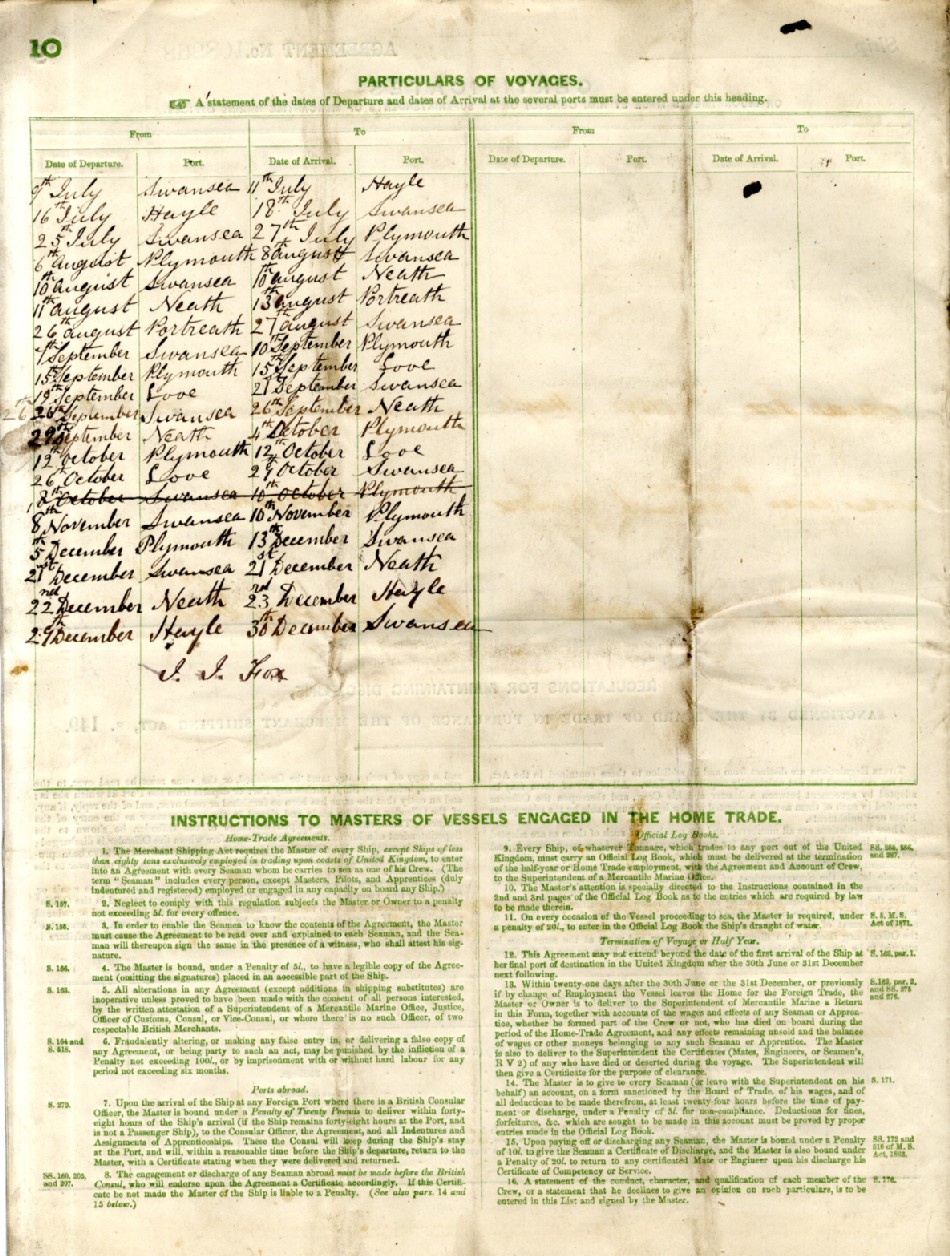 10
PARTICULARS OF VOYAGES.
A statement of the dates of Departure and dates of Arrival at the several ports must be entered under this heading.
From To From To
Date of Departure. Port. Date of Arrival. Port. Date of Departure. Port. Date of Arrival. Port.
9th July Swansea 11th July Hayle
16th July Hayle 18th July Swansea
25th July Swansea 27th July Plymouth
6th august Plymouth 8th august Swansea
10th august Swansea 10th august Neath
11th august Neath 13th august Portreath
26th august Portreath 27th august Swansea
7th September Swansea 10th September Plymouth
15th September Plymouth 15th September Looe
19th September Looe 21st September Swansea
26th 26th September Swansea 26th September Neath
29th September Neath 4th October Plymouth
12th October Plymouth 12th October Looe
26th October Looe 29th October Swansea
October Swansea 10th October Plymouth
8th November Swansea 10th November Plymouth
5th December Plymouth 13th December Swansea
21st December Swansea 21st December Neath
22nd December Neath 23rd December Hayle
29th December Hayle 30th December Swansea
J. J. Fox
INSTRUCTIONS TO MASTERS OF VESSELS ENGAGED IN THE HOME TRADE.
Home-Trade Agreements.
1. The Merchant Shipping Act requires the Master of every Ship, except Ships of less
than eighty tons exclusively employed in trading upon coasts of United Kingdom, to enter
into an Agreement with every Seaman whom he carries to sea as one of his Crew. (The
term "Seaman" includes every person, except Masters, Pilots, and Apprentices (duly
indentured and registered) employed or engaged in any capacity on board any Ship.)
S. 157. 2. Neglect to comply with this regulation subjects the Master or Owner to a penalty
not exceeding 5l. for every offence.
S. 155. 3. In order to enable the Seamen to know the contents of the Agreement, the Master
must cause the Agreement to be read over and explained to each Seaman, and the Sea-
man will thereupon sign the same in the presence of a witness, who shall attest his sig-
nature.
S. 166. 4. The Master is bound, under a Penalty of 5l., to have a legible copy of the Agree-
ment (omitting the signatures) placed in an accessible part of the Ship.
S. 163. 5. All alterations in any Agreement (except additions in shipping substitutes) are
inoperative unless proved to have been made with the consent of all persons interested,
by the written attestation of a Superintendent of a Mercantile Marine Office, Justice,
Officer of Customs, Consul, or Vice-Consul, or where there is no such Officer, of two
respectable British Merchants.
S. 164 and S. 518. 6. Fraudulently altering, or making any false entry in, or delivering a false copy of
any Agreement, or being party to such an act, may be punished by the infliction of a
Penalty not exceeding 100l., or by imprisonment with or without hard labour for any
period not exceeding six months.
Ports abroad.
S. 279. 7. Upon the arrival of the Ship at any Foreign Port where there is a British Consular
Officer, the Master is bound under a Penalty of Twenty Pounds to deliver within forty-
eight hours of the Ship's arrival (if the Ship remains forty-eight hours at the Port, and
is not a Passenger Ship), to the Consular Officer, the Agreement, and all Indentures and
Assignments of Apprenticeships. These the Consul will keep during the Ship's stay
at the Port, and will, within a reasonable time before the Ship's departure, return to the
Master, with a Certificate stating when they were delivered and returned.
SS. 160, 205, and 207. 8. The engagement or discharge of any Seaman abroad must be made before the British
Consul, who will endorse upon the Agreement a Certificate accordingly. If this Certifi-
cate be not made the Master of the Ship is liable to a Penalty. (See also pars. 14 and
15 below.)
Official Log Books.
9. Every Ship, of whatever Tonnage, which trades to any port out of the United
Kingdom, must carry an Official Log Book, which must be delivered at the termination
of the half-year or Home Trade employment, with the Agreement and Account of Crew,
to the Superintendent of a Mercantile Marine Office.
10. The Master's attention is specially directed to the Instructions contained in the
2nd and 3rd pages of the Official Log Book as to the entries which are required by law
to be made therein.
11. On every occasion of the Vessel proceeding to sea, the Master is required, under S. 5, M. S. Act of 1871.
a penalty of 20l., to enter in the Official Log Book the Ship's draught of water.
Termination of Voyage or Half Year.
12. This Agreement may not extend beyond the date of the first arrival of the Ship at
her final port of destination in the United Kingdom after the 30th June or 31st December
next following.
13. Within twenty-one days after the 30th June or the 31st December, or previously
if by change of Employment the Vessel leaves the Home for the Foreign Trade, the
Master or Owner is to deliver to the Superintendent of Mercantile Marine a Return
in this Form, together with accounts of the wages and effects of any Seaman or Appren-
tice, whether he formed part of the Crew or not, who has died on board during the
period of the Home-Trade Agreement, and any effects remaining unsold and the balance
of wages or other moneys belonging to any such Seaman or Apprentice. The Master
is also to deliver to the Superintendent the Certificates (Mates, Engineers, or Seamen's,
R V 2) of any who have died or deserted during the voyage. The Superintendent will
then give a Certificate for the purpose of clearance.
14. The Master is to give to every Seaman (or leave with the Superintendent on his S. 171.
behalf) an account, on a form sanctioned by the Board of Trade, of his wages, and of
all deductions to be made therefrom, at least twenty-four hours before the time of pay-
ment or discharge, under a Penalty of 5l. for non-compliance. Deductions for fines,
forfeitures, &c. which are sought to be made in this account must be proved by proper
entries made in the Official Log Book.
15. Upon paying off or discharging any Seaman, the Master is bound under a Penalty
of 10l. to give the Seaman a Certificate of Discharge, and the Master is also bound under
a Penalty of 20l. to return to any certificated Mate or Engineer upon his discharge his
Certificate of Competency or Service.
16. A statement of the conduct, character, and qualification of each member of the S. 176.
Crew, or a statement that he declines to give an opinion on such particulars, is to be
entered in this List and signed by the Master.